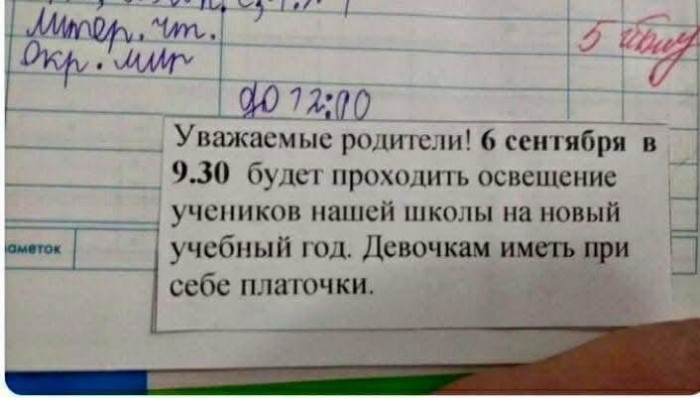 Литер. чт.
Окр. мир
5
до 12:00
Уважаемые родители! 6 сентября в
9.30 будет проходить освещение
учеников нашей школы на новый
учебный год. Девочкам иметь при
себе платочки.
аметок